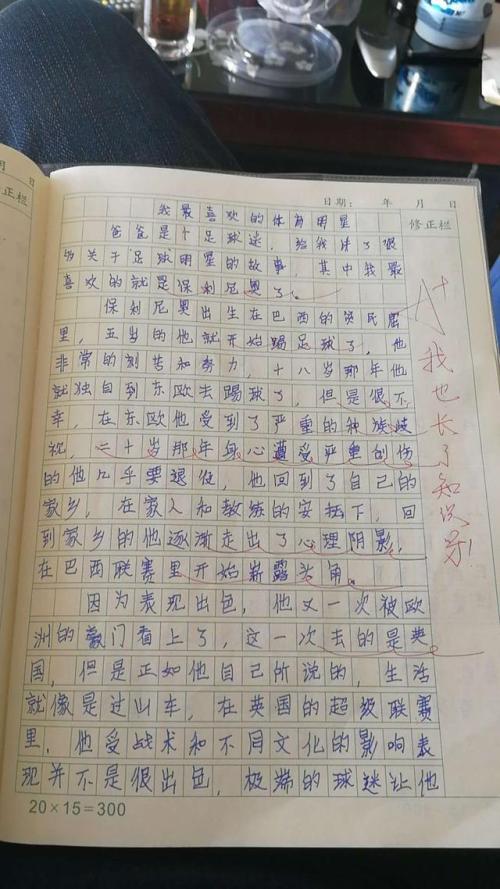 月 日
正栏
日期： 年 月 日
修正栏
我最喜欢的体育明星
爸爸是个足球迷，给我讲了很
多关于足球明星的故事，其中我最
喜欢的就是保利尼奥了。
保利尼奥出生在巴西的贫民窟
里，五岁的他就开始踢足球了，他
非常的刻苦和努力，十八岁那年他
就独自到东欧去踢球了，但是很不
幸，在东欧他受到了严重的种族歧
视，二十岁那年身心遭受严重创伤
的他几乎要退役，他回到了自己的
家乡，在家人和教练的安抚下，回
到家乡的他逐渐走出了心理阴影，
在巴西联赛里开始崭露头角。
因为表现出色，他又一次被欧
洲的豪门看上了，这一次去的是英
国，但是正如他自己所说的，生活
就像是过山车，在英国的超级联赛
里，他受战术和不同文化的影响表
现并不是很出色，极端的球迷让他
20×15=300
A+
我也长了知识!